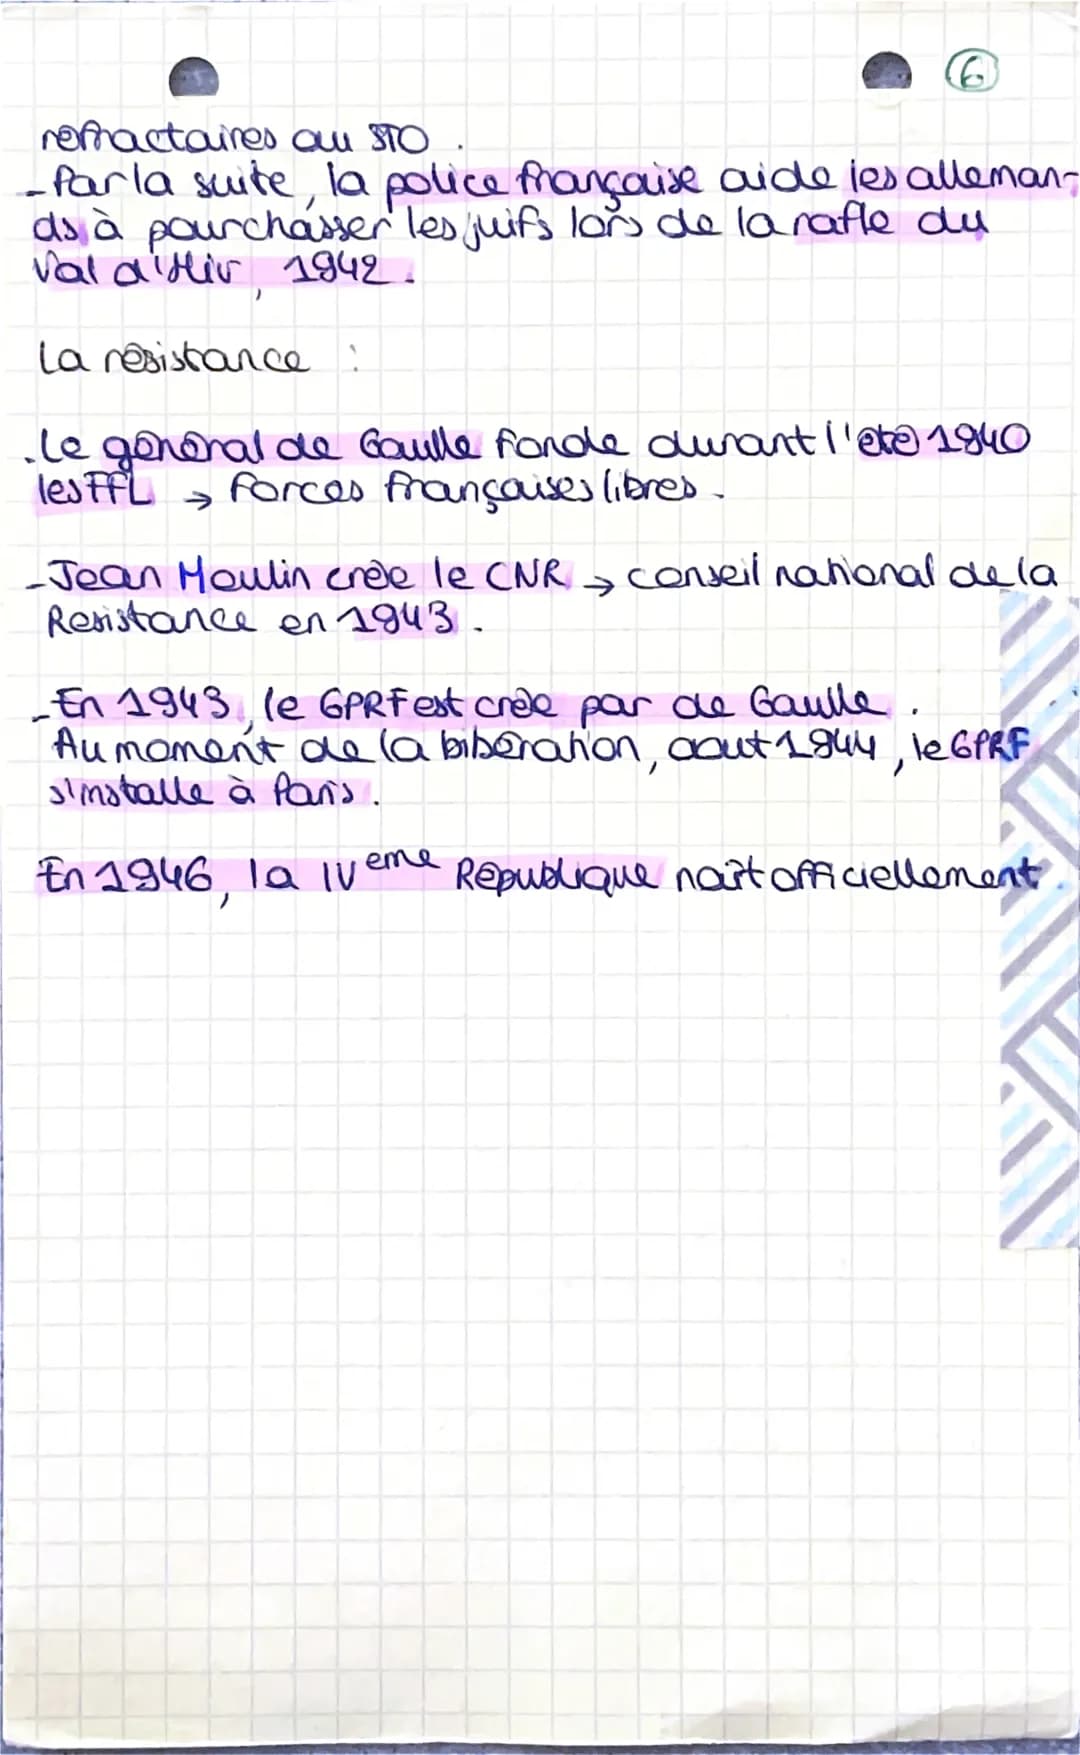 6
refractaires au STO.
- Par la suite, la police française aide les alleman-
ds à pourchasser les juifs lors de la rafle du
Val d'Hiv, 1942.
La résistance :
. Le général de Gaulle fonde durant l'été 1940
les FFL → Forces françaises libres.
- Jean Moulin crée le CNR → conseil national de la
Resistance en 1943.
- En 1943, le GPRF est crée par de Gaulle.
Au moment de la bibération, aout 1944, le GPRF
s'installe à Paris.
En 1946, la IVeme République naît officiellement.